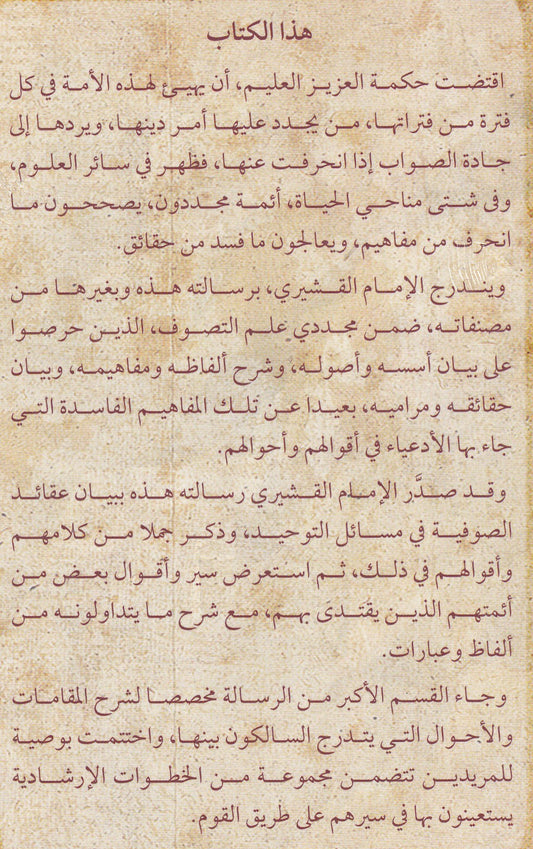 هذا الكتاب
اقتضت حكمة العزيز العليم، أن يهيئ لهذه الأمة في كل
فترة من فتراتها، من يجدد عليها أمر دينها، ويردها إلى
جادة الصواب إذا انحرفت عنها، فظهر في سائر العلوم،
وفى شتى مناحي الحياة، أئمة مجددون، يصححون ما
انحرف من مفاهيم، ويعالجون ما فسد من حقائق.
ويندرج الإمام القشيري، برسالته هذه وبغيرها من
مصنفاته، ضمن مجددي علم التصوف، الذين حرصوا
على بيان أسسه وأصوله، وشرح ألفاظه ومفاهيمه، وبيان
حقائقه ومراميه، بعيدا عن تلك المفاهيم الفاسدة التي
جاء بها الأدعياء في أقوالهم وأحوالهم.
وقد صدَّر الإمام القشيري رسالته هذه ببيان عقائد
الصوفية في مسائل التوحيد، وذكر جملا من كلامهم
وأقوالهم في ذلك، ثم استعرض سير وأقوال بعض من
أئمتهم الذين يقتدى بهم، مع شرح ما يتداولونه من
ألفاظ وعبارات.
وجاء القسم الأكبر من الرسالة مخصصا لشرح المقامات
والأحوال التي يتدرج السالكون بينها، واختتمت بوصية
للمريدين تتضمن مجموعة من الخطوات الإرشادية
يستعينون بها في سيرهم على طريق القوم.